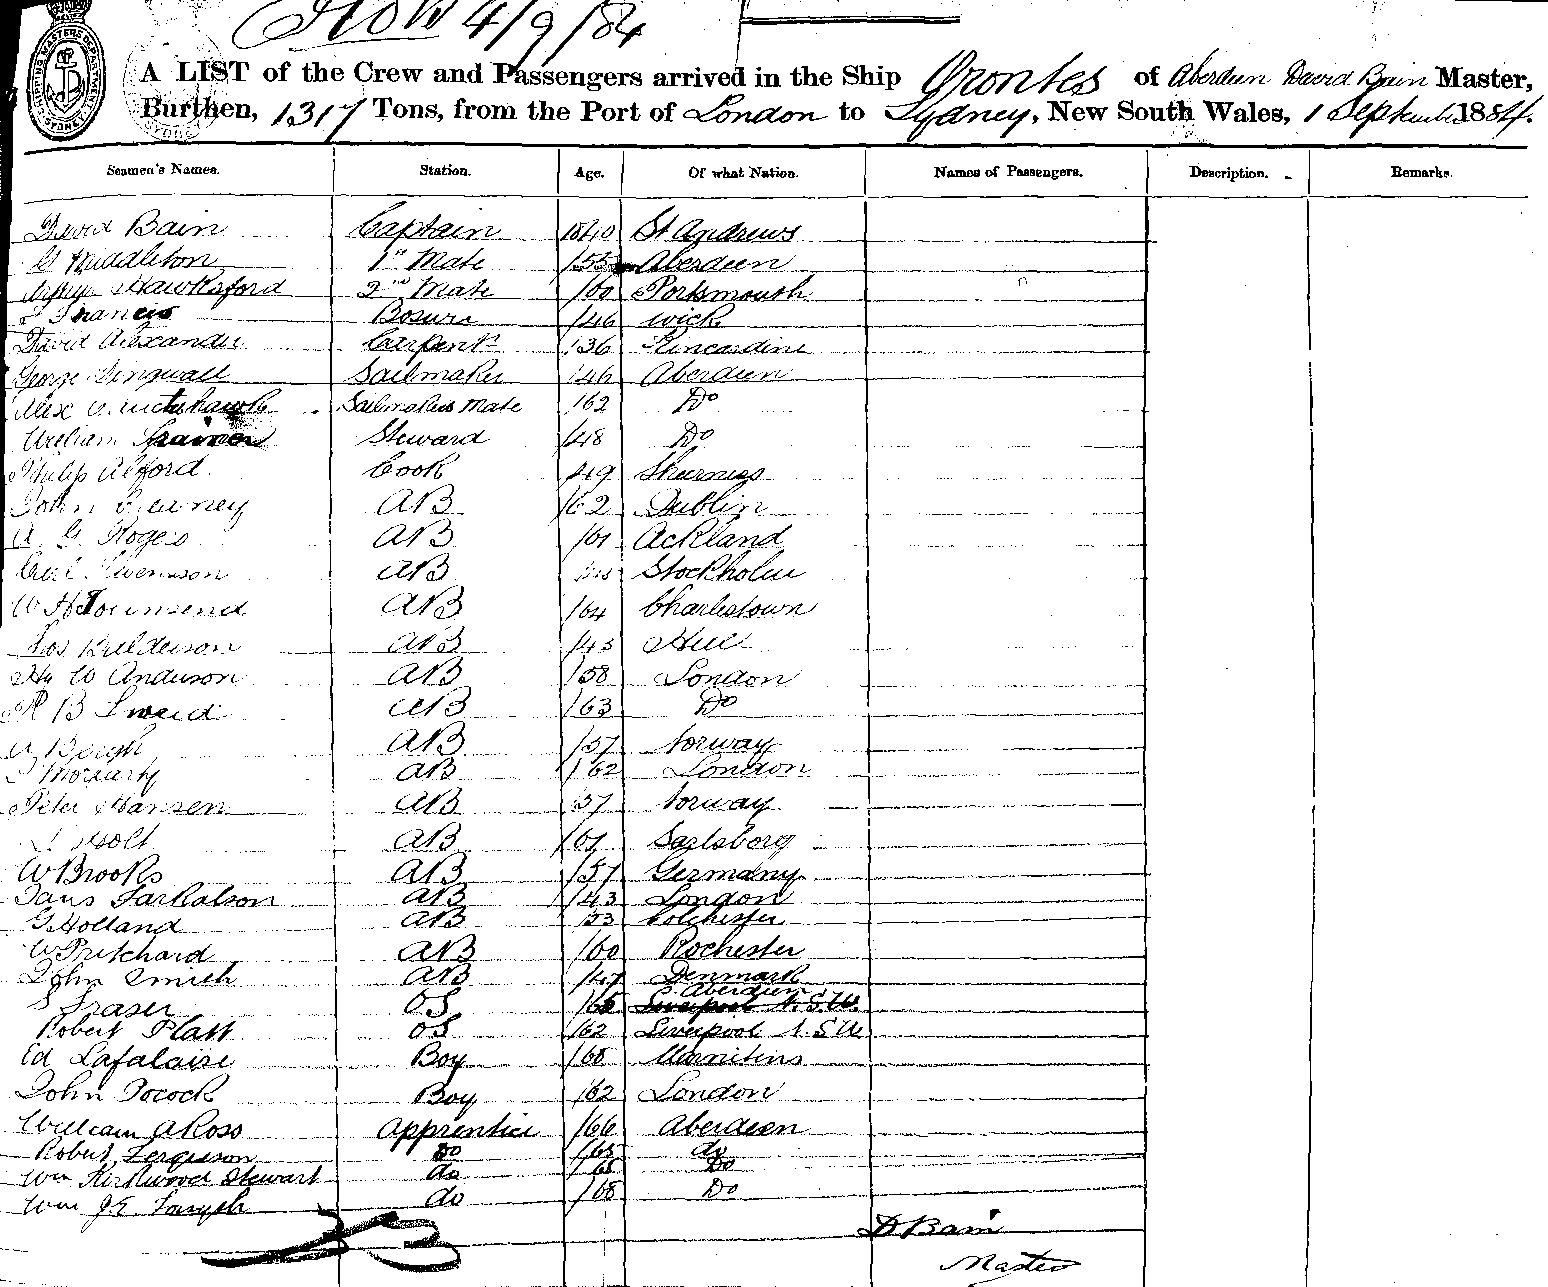 4/9/84
SHIPPING MASTERS DEPARTMENT SYDNEY
A LIST of the Crew and Passengers arrived in the Ship Orontes of Aberdeen David Bain Master,
Burthen, 1317 Tons, from the Port of London to Sydney, New South Wales, 1 September 1884.
Seamen's Names. Station. Age. Of what Nation. Names of Passengers. Description. Remarks.
David Bain Captain 1840 St Andrews
Middleton 1st Mate /55 Aberdeen
Arthur Hawksford 2nd Mate /60 Portsmouth
Francis Bosun /46 Wick
David Alexander Carpentr /36 Kincardine
George Dingwall Sailmaker /46 Aberdeen
Alex Sailmakers Mate /62 Do
William Steward /48 Do
Philip Alford Cook /49 Sheerness
John AB /62 Dublin
A. G. Rogers AB /61 Ackland
Carl Swensson AB Stockholm
W H Townsend AB /64 Charlestown
AB /45 Hull
Hy W Anderson AB /58 London
B AB /63 Do
AB /57 Norway
Moriarty AB /62 London
Peter Hansen AB /57 Norway
Holt AB /61 Sarlsborg
W Brooks AB /57 Germany
AB /43 London
G Holland AB /53 Colchester
W Pritchard AB /60 Rochester
John Smith AB /47 Denmark
S Fraser OS Aberdeen Liverpool N.S.W.
Robert Platt OS /62 Liverpool N.S.W.
Ed Lafalaise Boy /68 Mauritius
John Pocock Boy /62 London
William A Ross Apprentice /66 Aberdeen
Robert Ferguson Do /65 do
Wm Kirkwood Stewart do /65 Do
Wm J E Forsyth do /68 Do
D Bain
Master